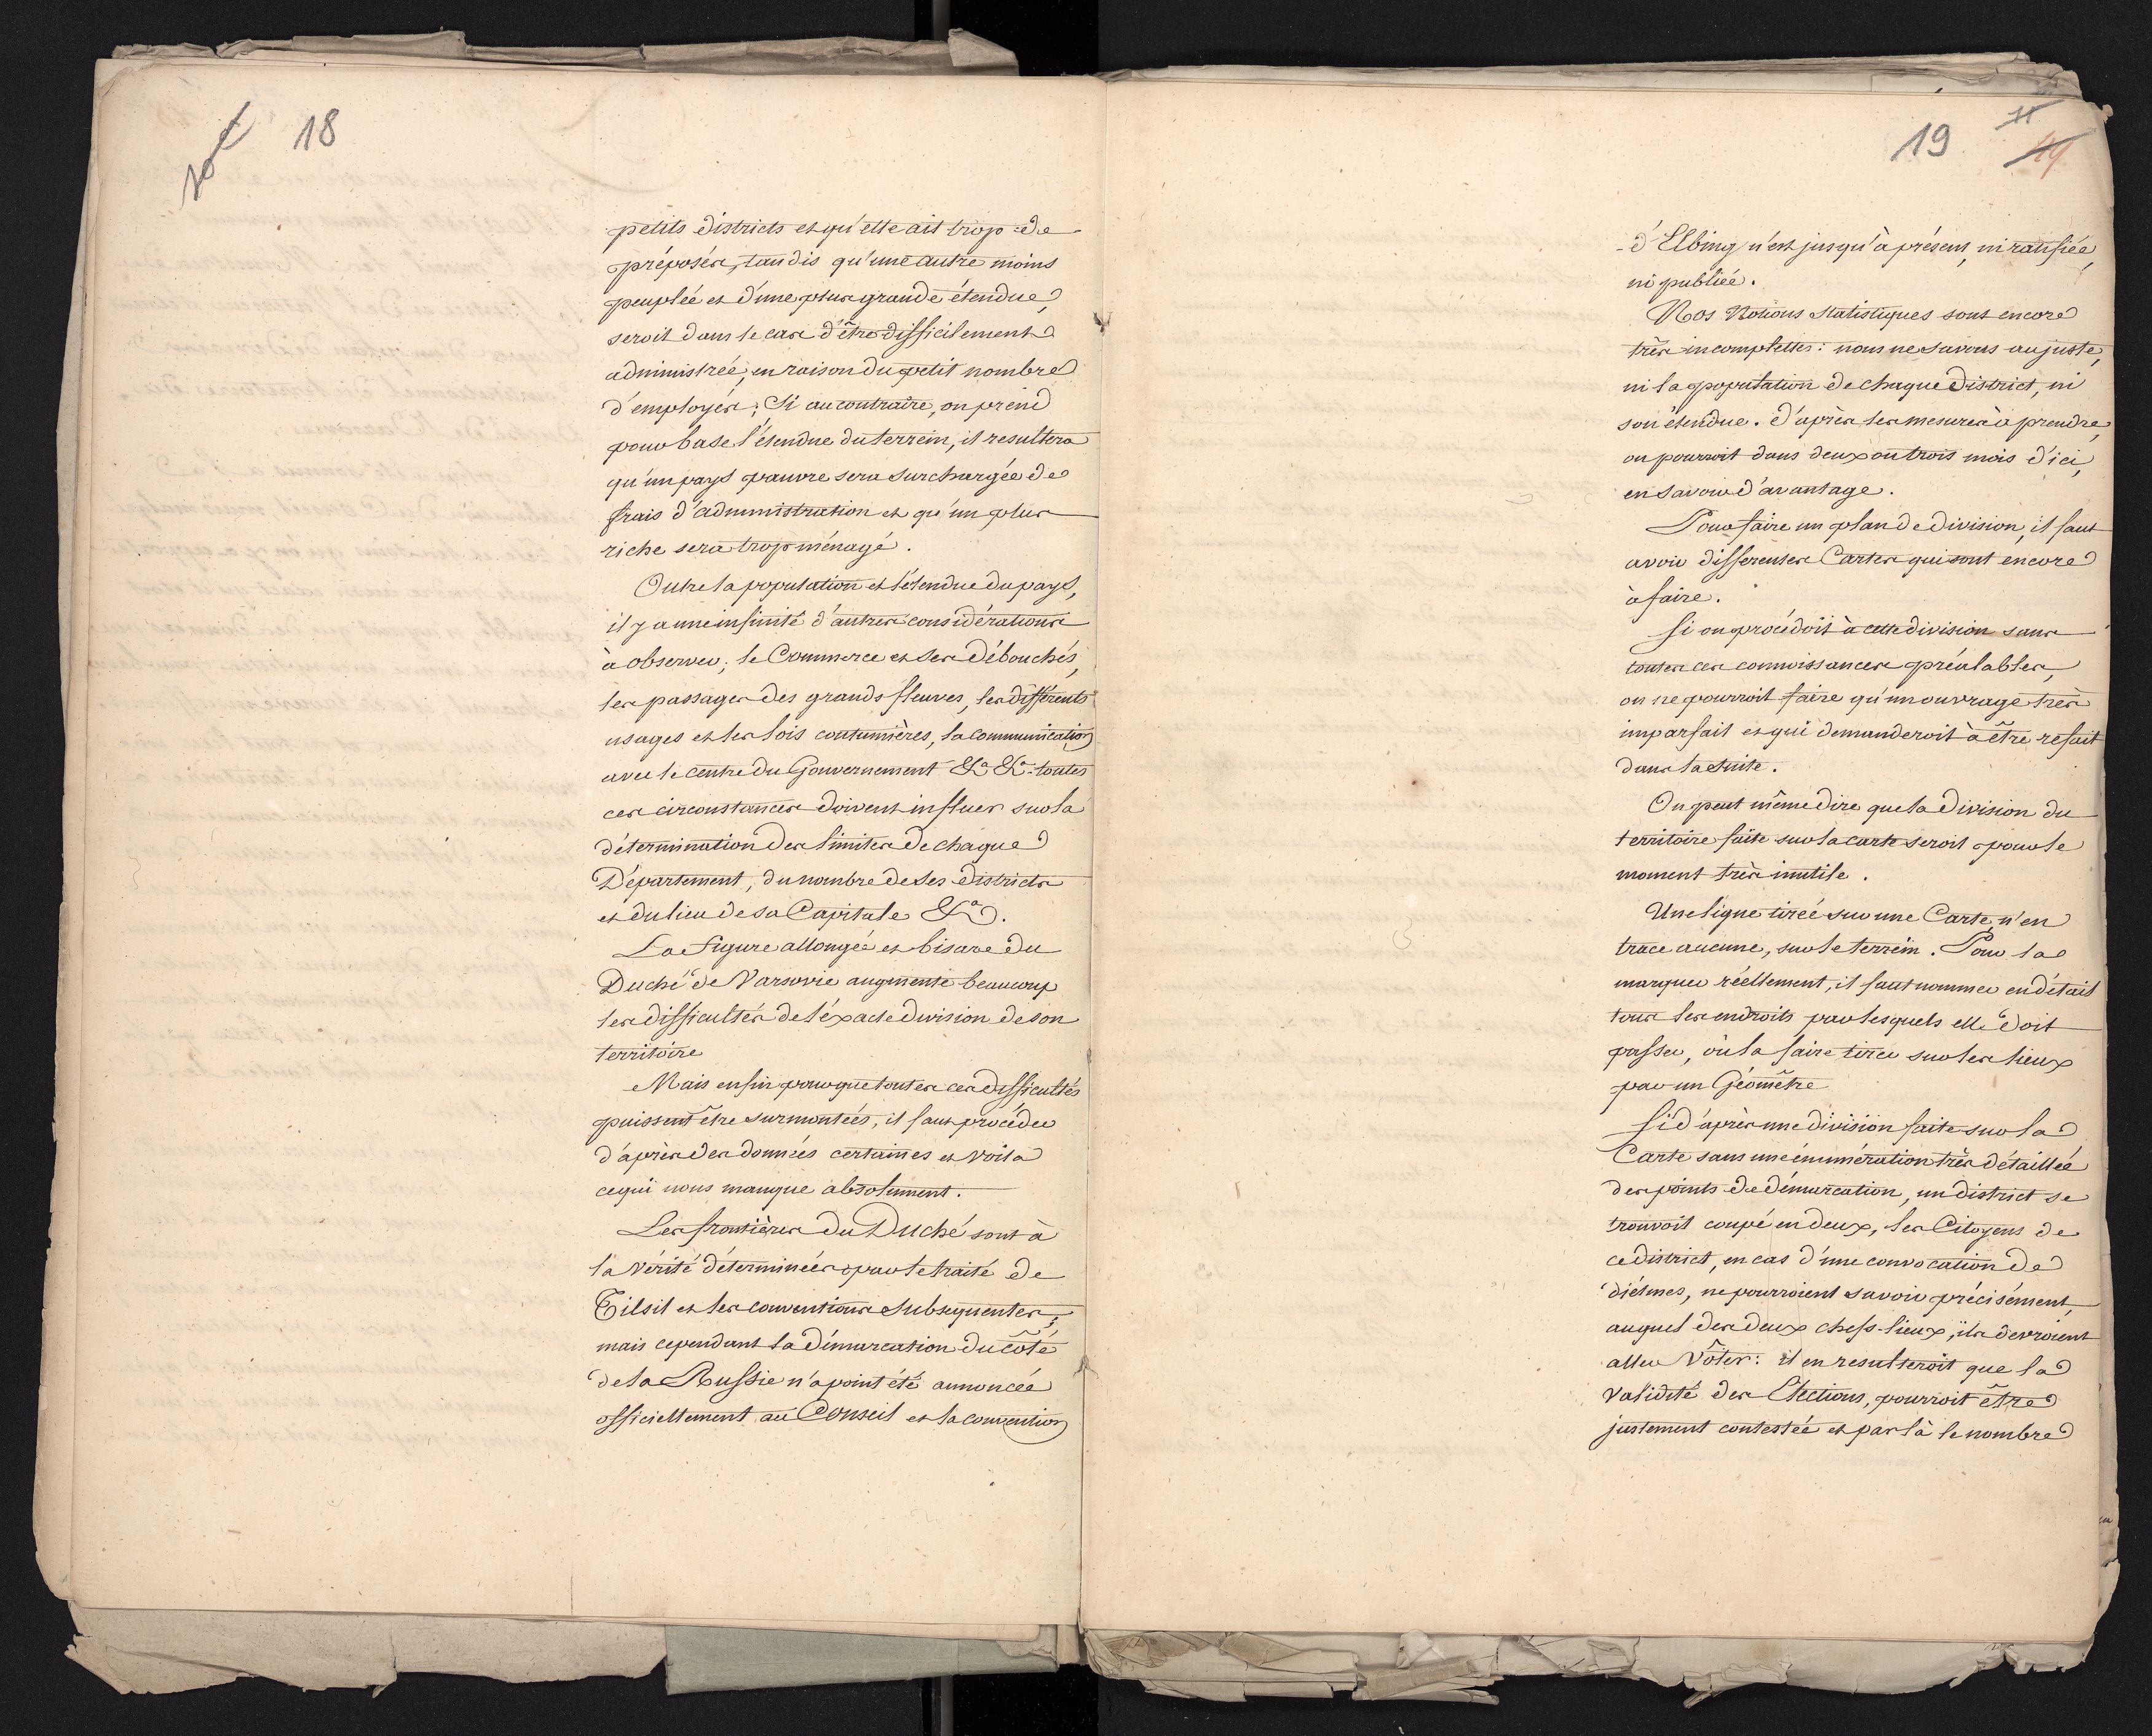 18
petits districts et qu'elle ait trop de
préposés, tandis qu'une autre moins
peuplée et d'une plus grande étendue,
seroit dans le cas d'être difficilement
administrée, en raison du petit nombre
d'employés; Si au contraire, on prend
pour base l'étendue du terrein, il resultera
qu'un pays pauvre sera surchargée de
frais d'administration et qu'un plus
riche sera trop ménagé.
Outre la population et l'étendue du pays,
il y a une infinité d'autres considérations
à observer; le Commerce et ses Débouchés,
les passages des grands fleuves, les différents
usages et les lois coutumières, la communication
avec le centre du Gouvernement &a &a toutes
ces circonstances doivent influer sur la
détermination des limites de chaque
Département, du nombre de ses districts
et du lieu de sa Capitale &a.
La figure allongée et bisare du
Duché de Varsovie augmente beaucoup
les difficultés de l'éxacte division de son
territoire
Mais enfin pour que toutes ces difficultés
puissent être surmontées, il faut procéder
d'après des données certaines et voila
ce qui nous manque absolument.
Les frontières du Duché sont à
la vérité déterminées par le traité de
Tilsit et les conventions subsequentes;
mais cependant la démarcation du côté
de la Russie n'a point été annoncée
officiellement au Conseil et la convention
19
d'Elbing n'est jusqu'à présent, ni ratifiée,
ni publiée.
Nos Notions statistiques sont encore
très incomplettes: nous ne savons au juste,
ni la population de chaque district, ni
son étendue. d'après les mesures à prendre,
on pourroit dans deux ou trois mois d'ici,
en savoir d'avantage.
Pour faire un plan de division, il faut
avoir differentes Cartes qui sont encore
à faire.
Si on procédoit à cette division sans
toutes ces connoissances préalables,
on ne pourroit faire qu'un ouvrage très
imparfait et qui demanderoit à être refait
dans la suite.
On peut même dire que la division du
territoire faite sur la carte seroit pour le
moment très inutile.
Une ligne tirée sur une Carte, n'en
trace aucune, sur le terrein. Pour la
marquer réellement, il faut nommer en détail
tous les endroits par lesquels elle doit
passer, où la faire tirer sur les lieux
par un Géomêtre
Si d'après une division faite sur la
Carte sans une énumération très détaillée
des points de démarcation, un district se
trouvoit coupé en deux, les Citoyens de
ce district, en cas d'une convocation de
diétines, ne pourroient savoir précisément,
auquel des deux chefs-lieux, ils devroient
aller vôter: il en resulteroit que la
validité des Elections, pourroit être
justement contestée et par là le nombre